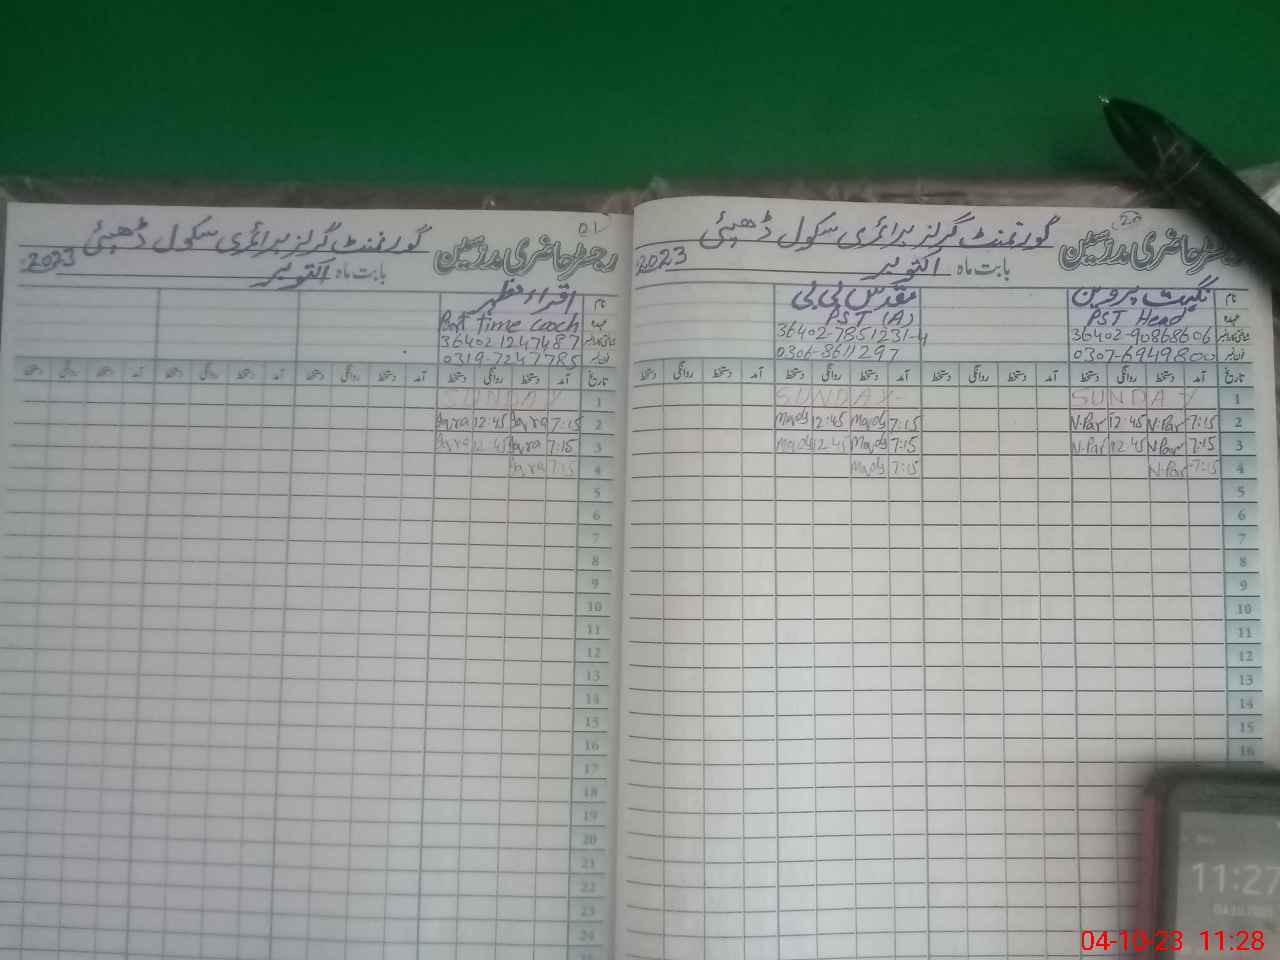 20
رجسٹر حاضری مدرسین گورنمنٹ گرلز پرائمری سکول ڈھپئی
بابت ماہ اکتوبر 2023
نام نگہت پروین مقدس بی بی
عہدہ PST Head PST (A)
36402-90868606 36402-7851231-4
0307-6949800 0306-8611297
تاریخ آمد دستخط روانگی دستخط آمد دستخط روانگی دستخط آمد دستخط روانگی دستخط آمد دستخط روانگی دستخط
1 SUNDAY SUNDAY
2 7:15 N.Par 12:45 N.Par 7:15 Maqds 12:45 Maqds
3 7:15 N.Par 12:45 N.Par 7:15 Maqds 12:45 Maqds
4 7:15 N.Par 7:15 Maqds
5
6
7
8
9
10
11
12
13
14
15
16
01
رجسٹر حاضری مدرسین گورنمنٹ گرلز پرائمری سکول ڈھپئی
بابت ماہ اکتوبر 2023
نام اقراء مظہر
عہدہ Part time coach
364021247487
0319-7247785
تاریخ آمد دستخط روانگی دستخط آمد دستخط روانگی دستخط آمد دستخط روانگی دستخط آمد دستخط روانگی دستخط
1 SUNDAY
2 7:15 Iqra 12:45 Iqra
3 7:15 Iqra 12:45 Iqra
4 7:15 Iqra
5
6
7
8
9
10
11
12
13
14
15
16
17
18
19
20
21
22
23
24
11:27
04-10-23 11:28